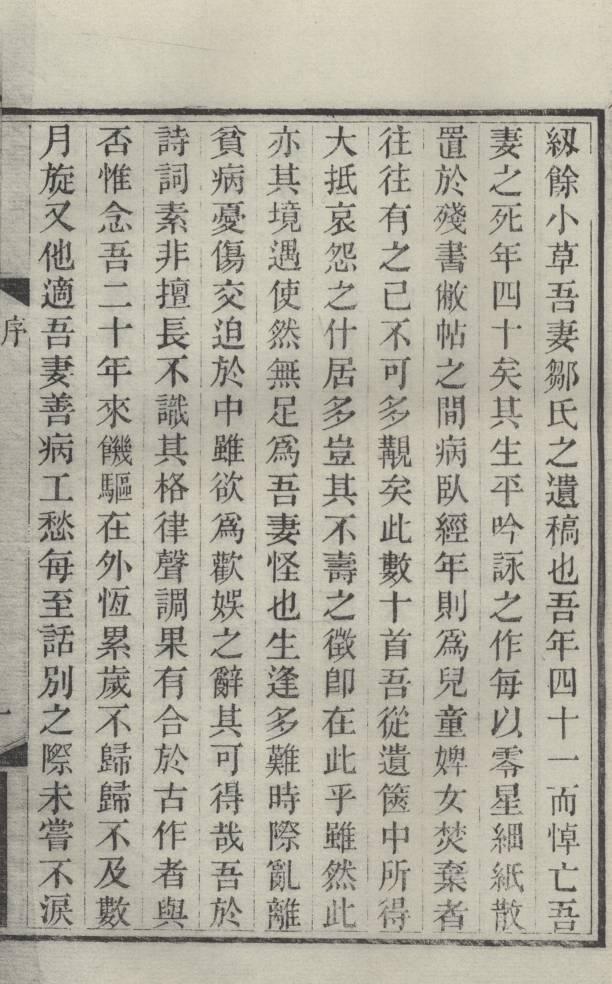 紉餘小草吾妻鄒氏之遺稿也吾年四十一而悼亡吾
妻之死年四十矣其生平吟詠之作每以零星細紙散
置於殘書敝帖之間病臥經年則爲兒童婢女焚棄者
往往有之已不可多覯矣此數十首吾從遺篋中所得
大抵哀怨之什居多豈其不壽之徵卽在此乎雖然此
亦其境遇使然無足爲吾妻怪也生逢多難時際亂離
貧病憂傷交迫於中雖欲爲歡娛之辭其可得哉吾於
詩詞素非擅長不識其格律聲調果有合於古作者與
否惟念吾二十年來饑驅在外恆累歲不歸歸不及數
月旋又他適吾妻善病工愁每至話別之際未嘗不淚
序
一